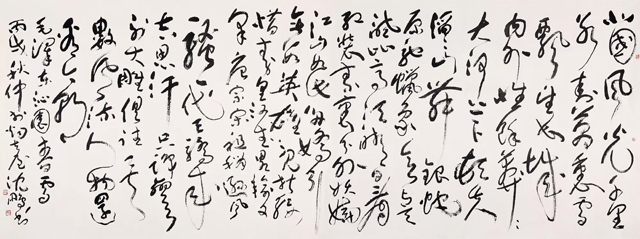 北國風光千里
冰封萬里雪
飘望长城
内外惟餘莽莽
大河上下顿失
滔滔山舞銀蛇
原驰蠟象欲与天
公试比高须晴日看
红装素裹分外妖娆
江山如此多娇引
无数英雄竞折腰
惜秦皇汉武略输文
采唐宗宋祖稍逊风
骚一代天骄成
吉思汗只识弯弓
射大雕俱往矣
数风流人物還
看今朝
毛泽东沁園春雪
丙戌秋仲沈鹏书